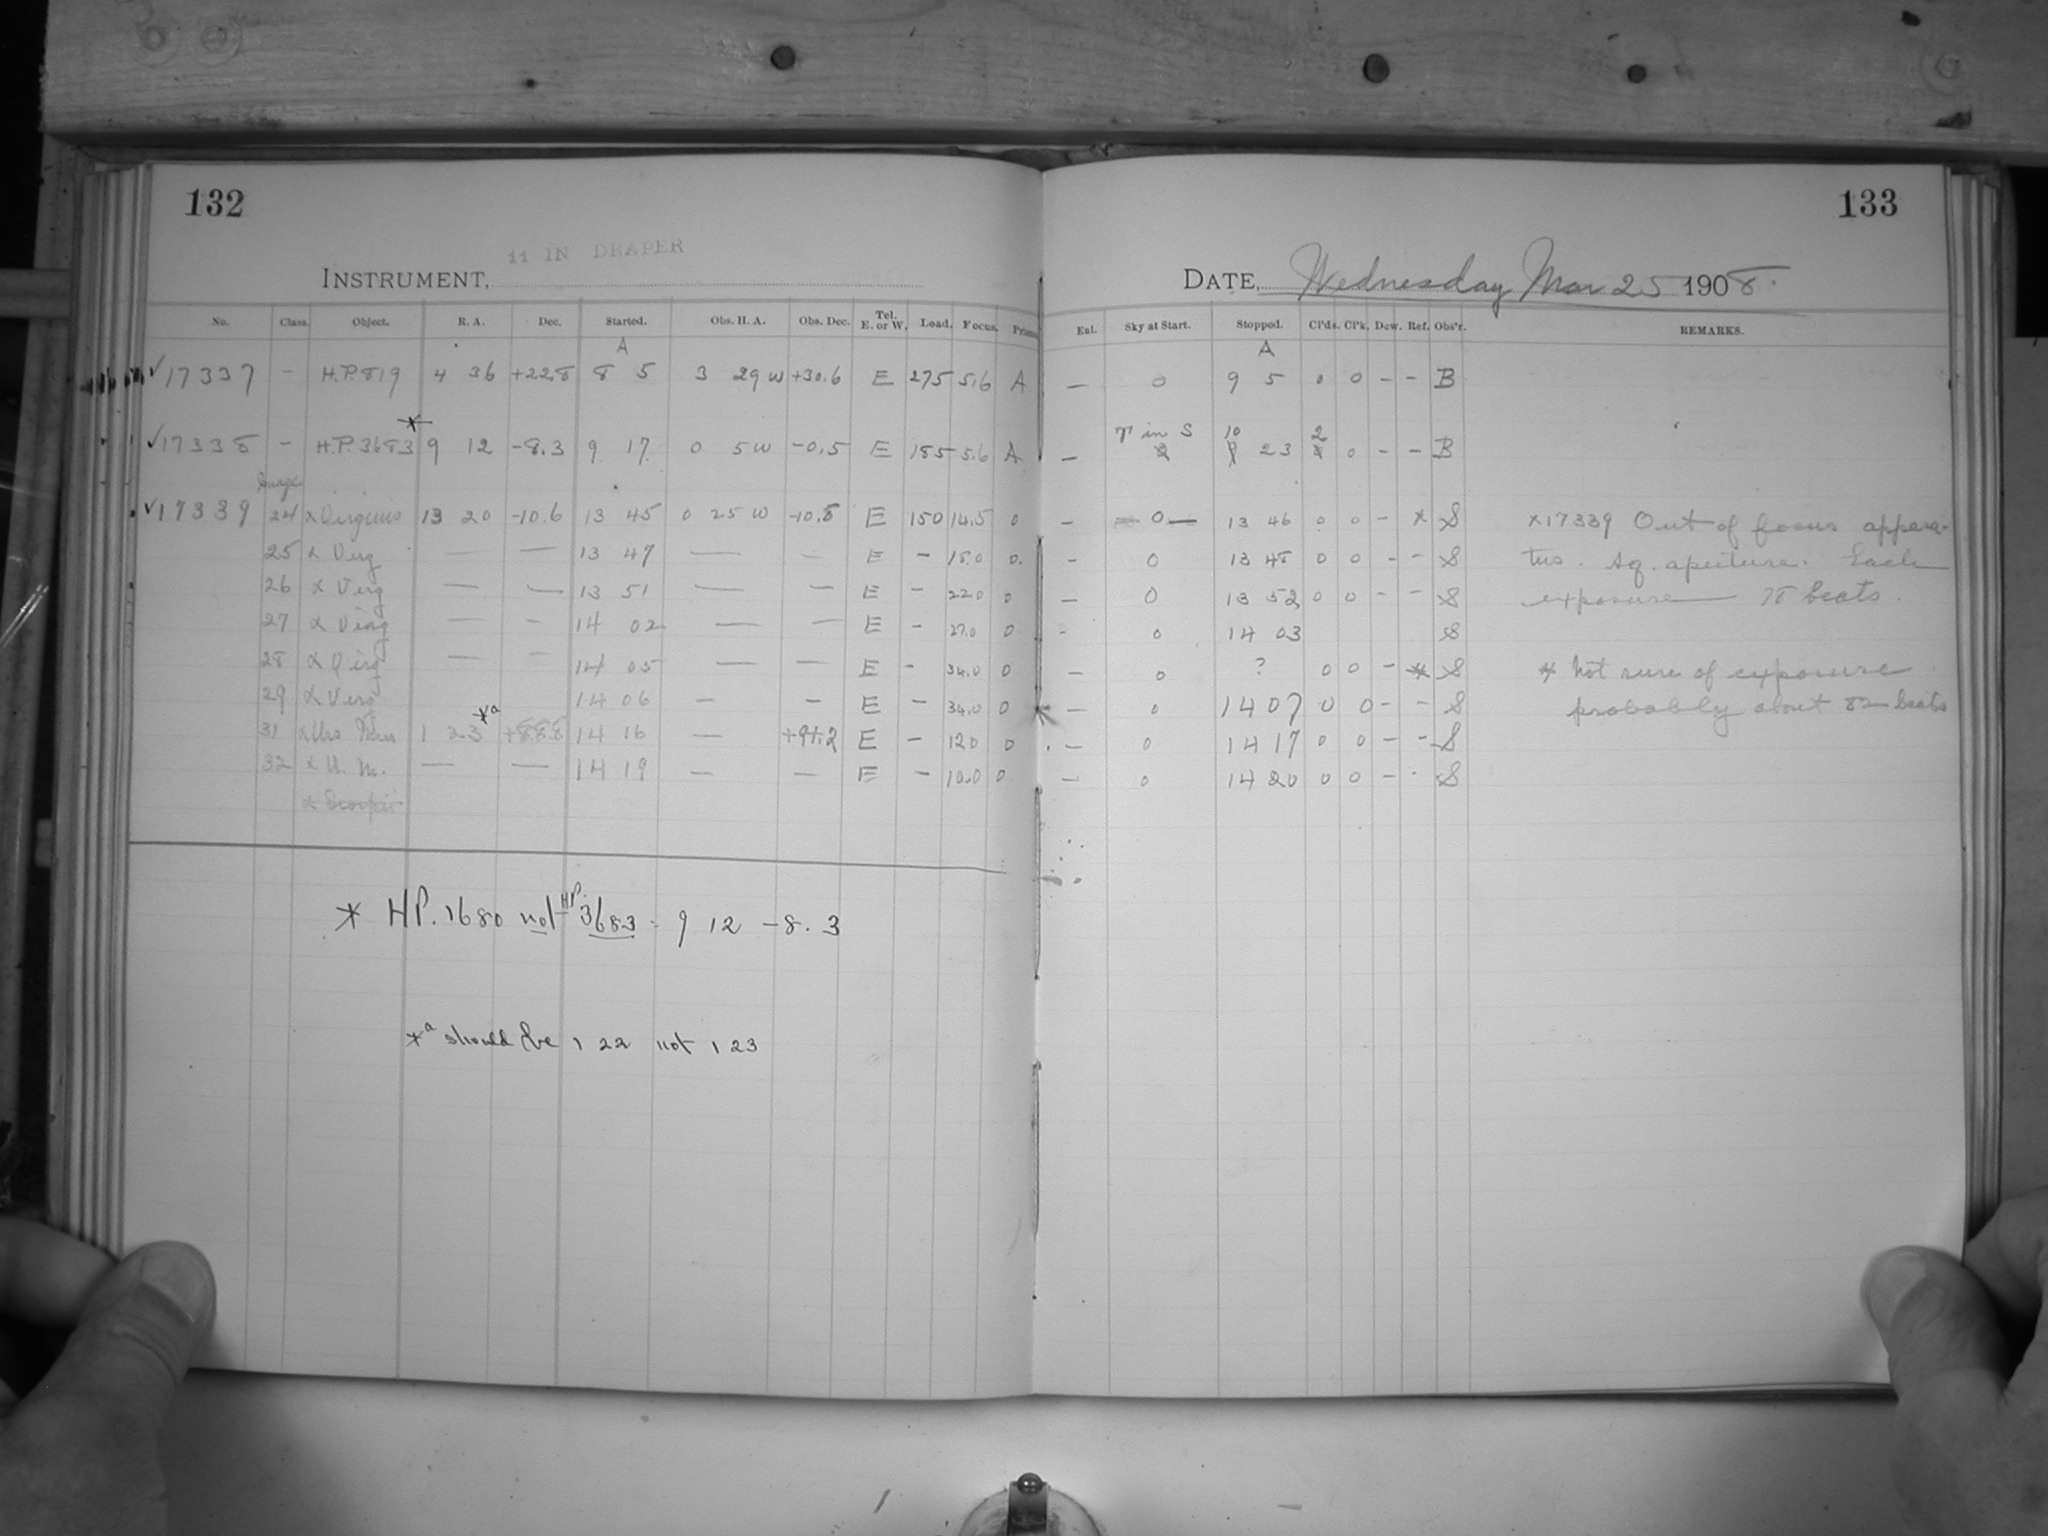 132
133
11 IN DRAPER
INSTRUMENT,
DATE, Wednesday Mar 25 1908.
No. Class. Object. R. A. Dec. Started. Obs. H. A. Obs. Dec. Tel. E. or W. Load. Focus. Prisms Enl. Sky at Start. Stopped. Cl'ds. Cl'k. Dew. Ref. Obs'r. REMARKS.
A A
✓17337 - H.P.819 4 36 +22.8 8 5 3 29 W +30.6 E 275 5.6 A - 0 9 5 0 0 - - B
✓17338 - H.P.3683* 9 12 -8.3 9 17 0 5 W -0.5 E 185 5.6 A - in S 10 23 2 0 - - B
Image
✓17339 24 α Virginis 13 20 -10.6 13 45 0 25 W -10.8 E 150 14.5 0 - 0 13 46 0 0 - * S ×17339 Out of focus appara-
25 α Virg — — 13 47 — — E - 18.0 0. - 0 13 48 0 0 - - S tus. Sq. aperture. Each
26 α Virg — — 13 51 — — E - 22.0 0 - 0 13 52 0 0 - - S exposure 78 beats.
27 α Virg — — 14 02 — — E - 27.0 0 - 0 14 03 S
28 α Virg — — 14 05 — — E - 34.0 0 - 0 ? 0 0 - * S * Not sure of exposure
29 α Virg 14 06 — — E - 34.0 0 - 0 14 07 0 0 - - S probably about 82 beats
31 α Urs Min 1 23*a +88.8 14 16 — +91.2 E - 12.0 0 - 0 14 17 0 0 - - S
32 α U. M. — — 14 19 — — E - 10.0 0 - 0 14 20 0 0 - - S
α Scorpii
* HP. 1680 not HP. 3683 = 9 12 -8.3
*a should be 1 22 not 1 23